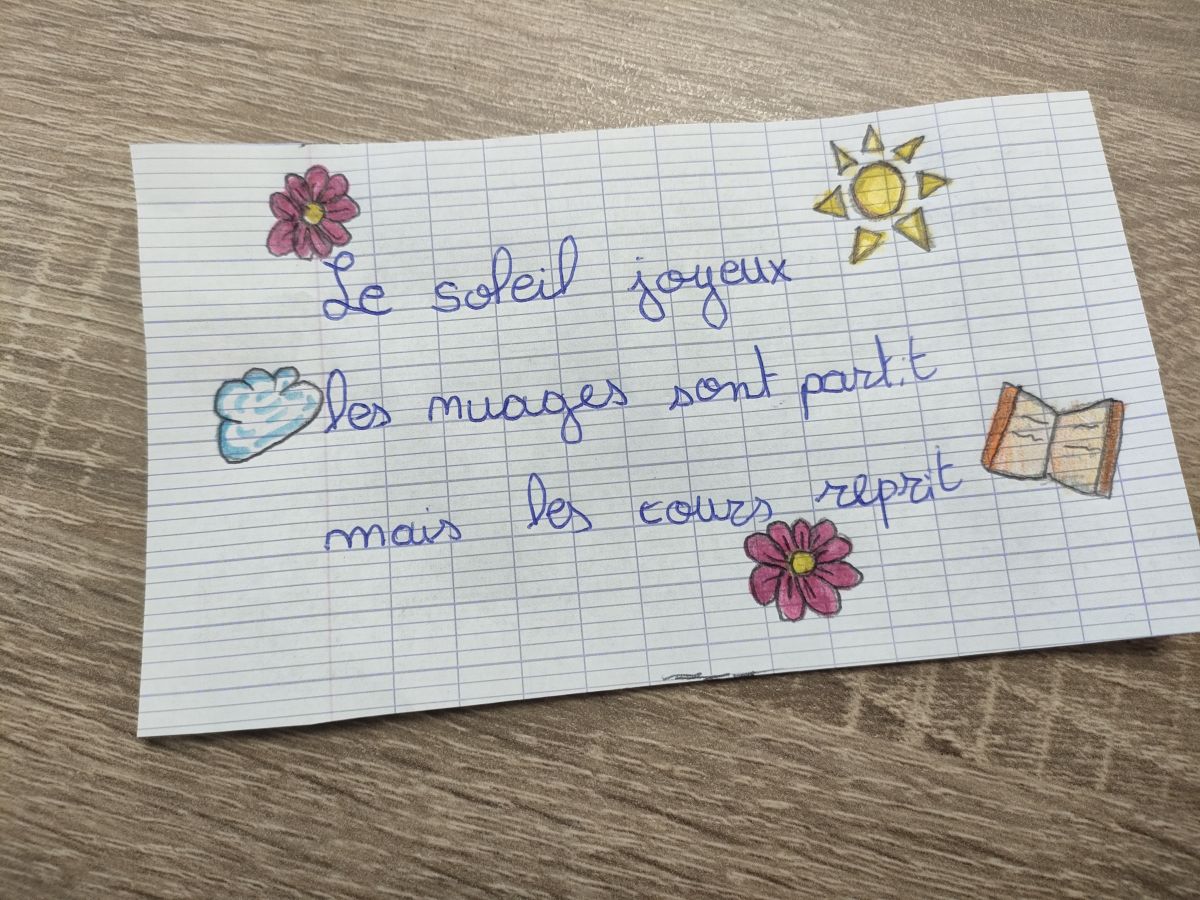 Le soleil joyeux
les nuages sont partit
mais les cours reprit